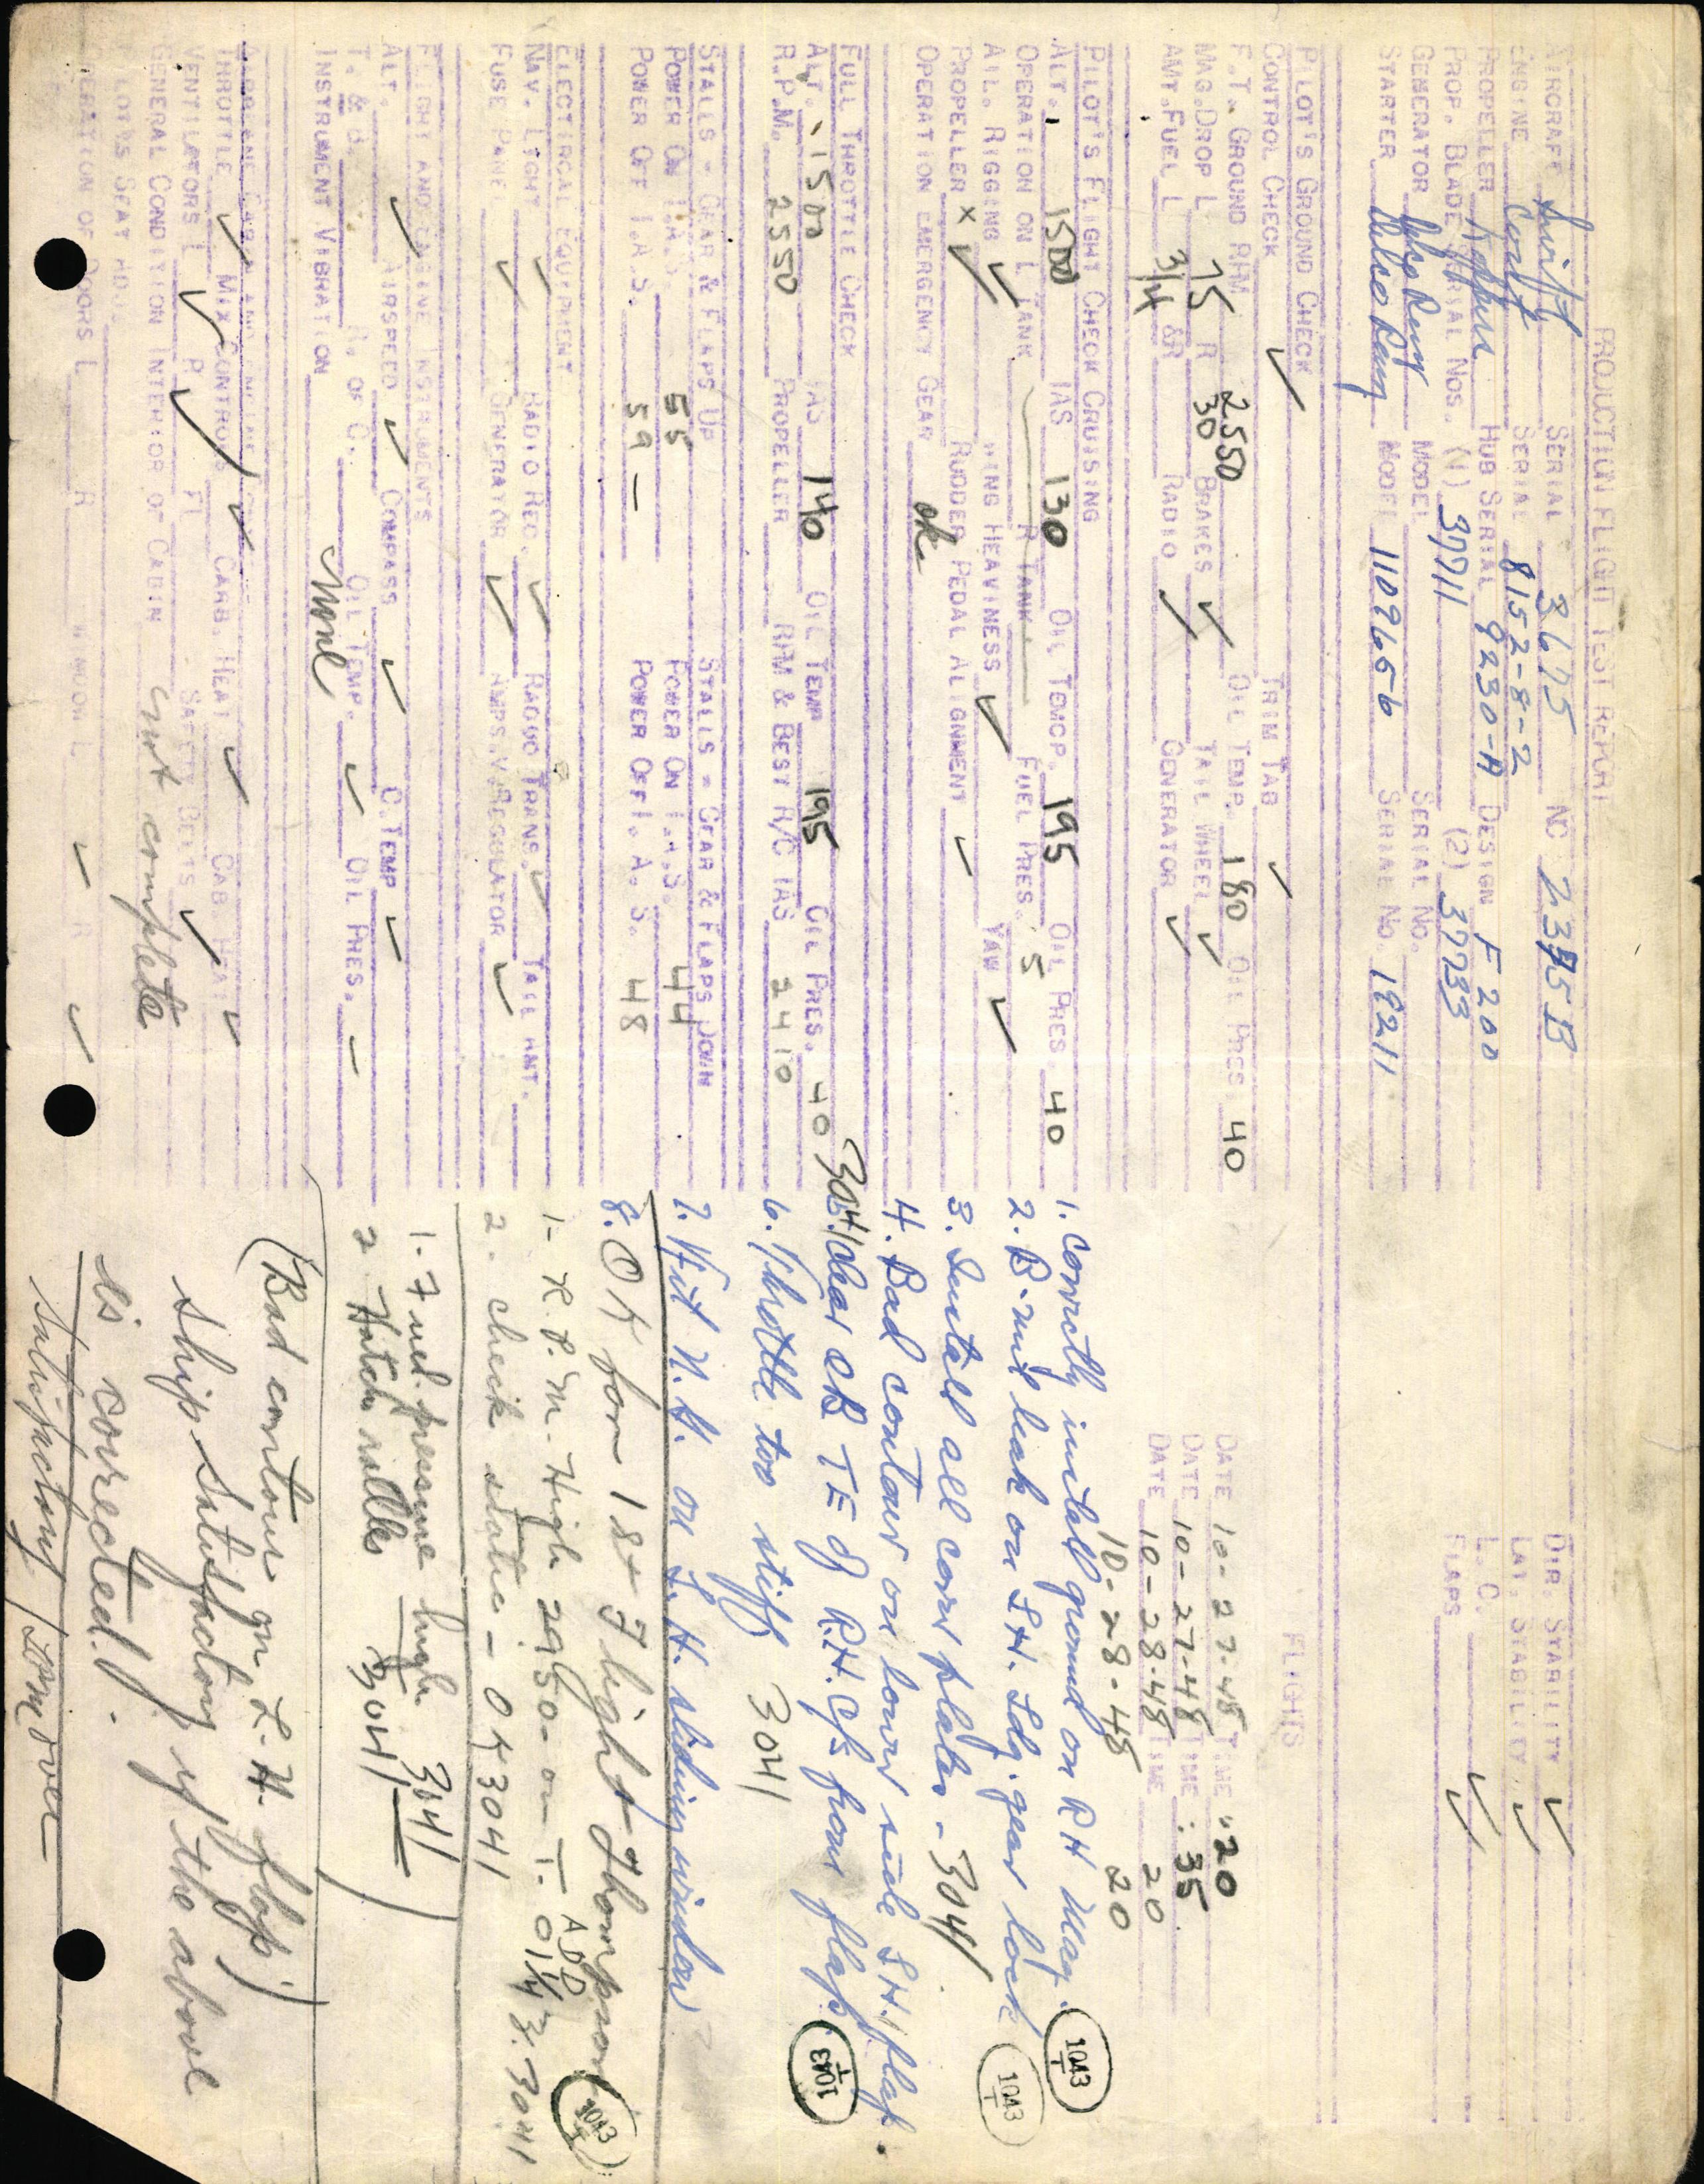 PRODUCTION FLIGHT TEST REPORT
AIRCRAFT Swift SERIAL 3675 NC 2375B DIR. STABILITY ✓
ENGINE Cont SERIAL 8152-8-2 LAT. STABILITY ✓
PROPELLER HUB SERIAL 9230-A DESIGN F200 L.O. ✓
PROP. BLADE SERIAL NOS. (1) 37711 (2) 37733 FLAPS ✓
GENERATOR Delco Remy MODEL SERIAL NO.
STARTER Delco Remy MODEL 1109656 SERIAL NO. 19211
PILOT'S GROUND CHECK FLIGHTS
CONTROL CHECK ✓ TRIM TAB ✓
F.T. GROUND RPM 2550 OIL TEMP. 180 OIL PRES. 40 DATE 10-27-48 TIME :20
MAG. DROP L 75 R 30 BRAKES ✓ TAIL WHEEL ✓ DATE 10-27-48 TIME :35
AMT. FUEL L 3/4 &R RADIO ✓ GENERATOR ✓ DATE 10-28-48 TIME 20
10-28-48 20
PILOT'S FLIGHT CHECK CRUISING
ALT. 1500 IAS 130 OIL TEMP. 195 OIL PRES. 40
OPERATION ON L TANK R TANK FUEL PRES. 5
AIL. RIGGING ✓ WING HEAVINESS ✓ YAW ✓
PROPELLER X ✓ RUDDER PEDAL ALIGNMENT ✓
OPERATION EMERGENCY GEAR ok
FULL THROTTLE CHECK
ALT. 1500 IAS 140 OIL TEMP 195 OIL PRES. 40
R.P.M. 2550 PROPELLER RPM & BEST R/C IAS 2410
STALLS - GEAR & FLAPS UP STALLS - GEAR & FLAPS DOWN
POWER ON I.A.S. 55 POWER ON I.A.S. 44
POWER OFF I.A.S. 59 - POWER OFF I.A.S. 48
ELECTRICAL EQUIPMENT
NAV. LIGHT ✓ RADIO REC. ✓ RADIO TRANS. ✓ TAIL ANT.
FUSE PANEL ✓ GENERATOR ✓ AMPS.V.REGULATOR ✓
FLIGHT AND ENGINE INSTRUMENTS
ALT. ✓ AIRSPEED ✓ COMPASS ✓ C.TEMP ✓
T. & B. R. OF C. OIL TEMP. ✓ OIL PRES. -
INSTRUMENT VIBRATION None
AIRPLANE CABIN AND ENGINE
THROTTLE ✓ MIX CONTROLS ✓ CARB. HEAT ✓ CAB HEAT ✓
VENTILATORS L ✓ R ✓ FL SAFETY BELTS ✓
GENERAL CONDITION INTERIOR OF CABIN not complete
PILOT'S SEAT ADJ.
OPERATION OF DOORS L R WINDOW L ✓ R ✓
1. Correctly install ground on RH Mag. 1043 T
2. B-nut leak on LH. Ldg. gear lock 1043 T
3. Install all cowl plates - 3041
4. Bad contour on lower side LH. flap.
3041 clear AB TE of RH. C/S from flap. 1043 T
6. Throttle too stiff 3041
7. on L.H. sliding window
8. OK for 1st Flight Thompson
1- R.P.M. High 2950 - on T. O ADD 1/4 3. 3041 1043 T
2- check static - OK 3041
1. Fuel pressure high 3041
2 Hatch rattles 3041
(Bad contour on L.H. flap)
Ship Satisfactory if the above
is corrected.
Satisfactory